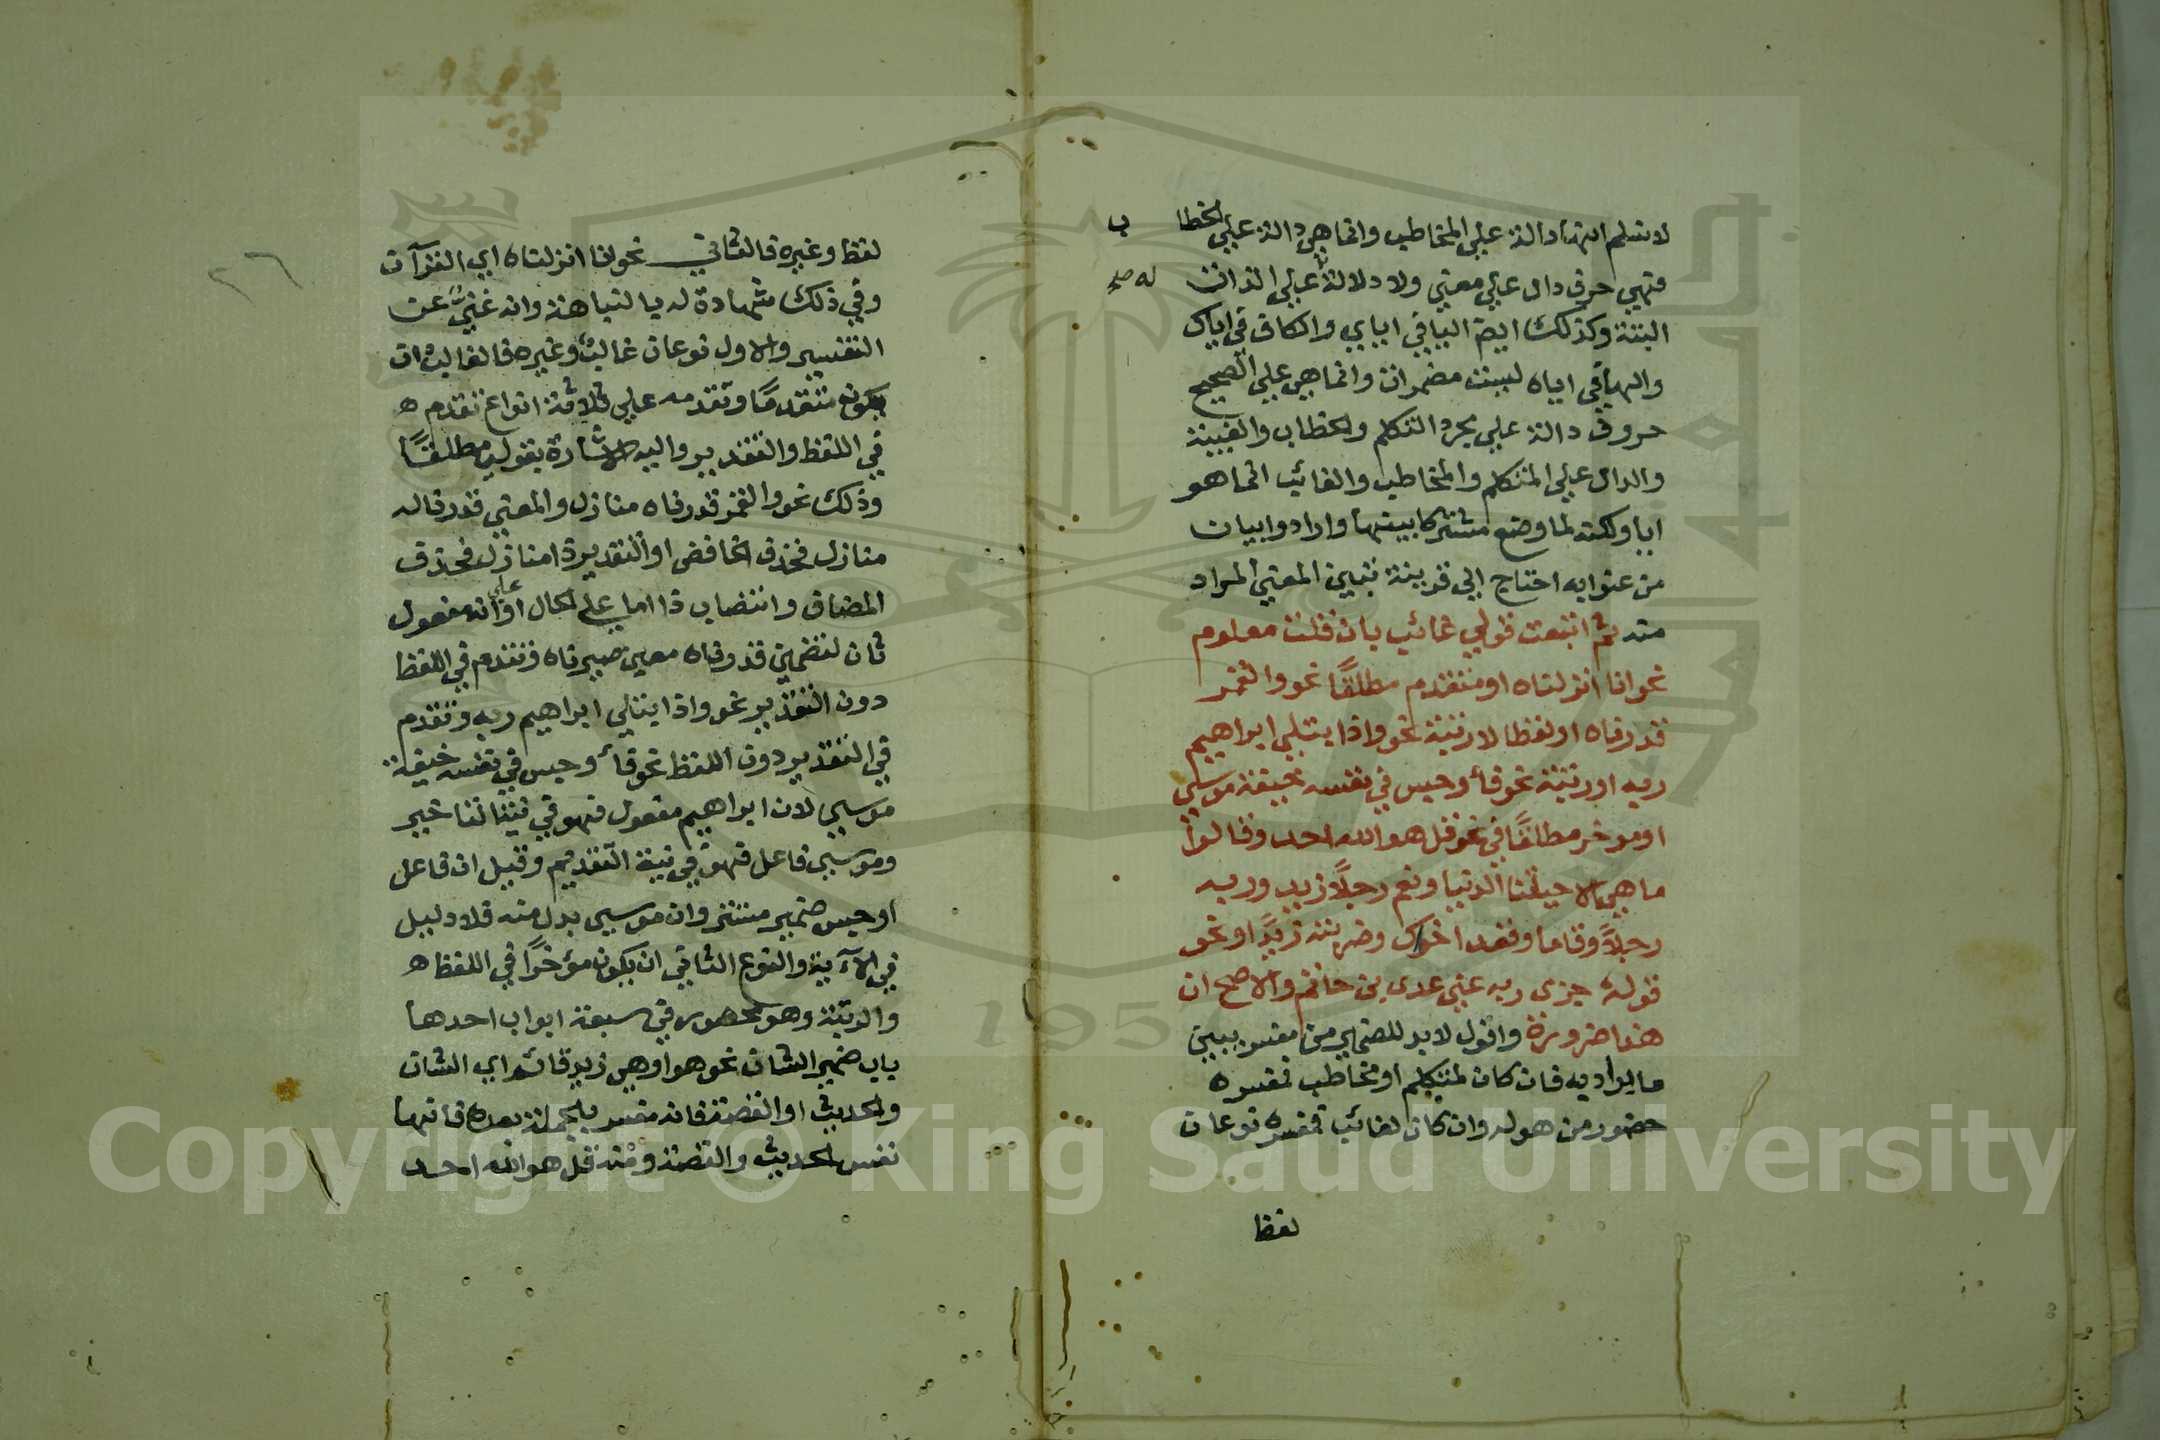 لا نسلم انها دالة علي المخاطب وانما هي دالة علي الخطاب
فهي حرف دال علي معني ولا دلالة له علي الذات صح
البتة وكذلك ايضا اليا في اياي والكاف في اياك
والها في اياه ليست مضمرات وانما هي علي الصحيح
حروف دالة علي مجرد التكلم والخطاب والغيبة
والدال علي المتكلم والمخاطب والغائب انما هو
ايا ولكنه لما وضع مشتركا بينها وارادوا بيان
من عنوا به احتاج الي قرينة تبين المعني المراد
منه ثم اتبعت قولي غائب بان قلت معلوم
نحو انا انزلناه او متقدم مطلقًا نحو والقمر
قدرناه او لفظا لا رتبة نحو واذا ابتلي ابراهيم
ربه او رتبة نحو فأوجس في نفسه خيفة موسي
او موخر مطلقًا في نحو قل هو الله احد وقالوا
ما هي الا حياتنا الدنيا ونعم رجلاً زيد وربه
رجلاً وقاما وقعد اخواك وضربته زيدًا ونحو
قوله جزى ربه عني عدى بن حاتم والاصح ان
هذا ضرورة واقول لا بد للضمير من مفسر يبين
ما يراد به فان كان لمتكلم او مخاطب فمفسره
حضور من هو له وان كان لغائب فمفسره نوعان
لفظا
٢٦
لفظ وغيره فالثاني نحو انا انزلناه اي القرآن
وفي ذلك شهادة له بالنباهة وانه غنيٌّ عن
التفسير والاول نوعان غالب وغيره فالغالب ان
يكون متقدمًا وتقدمه علي ثلاثة انواع تقدم
في اللفظ والتقدير واليه الاشارة بقولي مطلقًا
وذلك نحو والقمر قدرناه منازل والمعني قدرنا له
منازل فحذف الخافض او التقدير ذا منازل فحذف
المضاف وانتصاب ذا اما علي الحال او علي انه مفعول
ثان لتضمين قدرناه معني صيرناه وتقدم في اللفظ
دون التقدير نحو واذا ابتلي ابراهيم ربه وتقدم
في التقدير دون اللفظ نحو فأوجس في نفسه خيفة
موسي لان ابراهيم مفعول فهو في نية التاخير
وموسي فاعل فهو في نية التقديم وقيل ان فاعل
اوجس ضمير مستتر وان موسي بدل منه فلا دليل
في الآية والنوع الثاني ان يكون مؤخرًا في اللفظ
والرتبة وهو محصور في سبعة ابواب احدها
باب ضمير الشان نحو هو او هي زيد قائم اي الشان
والحديث او القصة فانه مفسر بالجملة بعده فانها
نفس الحديث والقصة ومنه قل هو الله احد